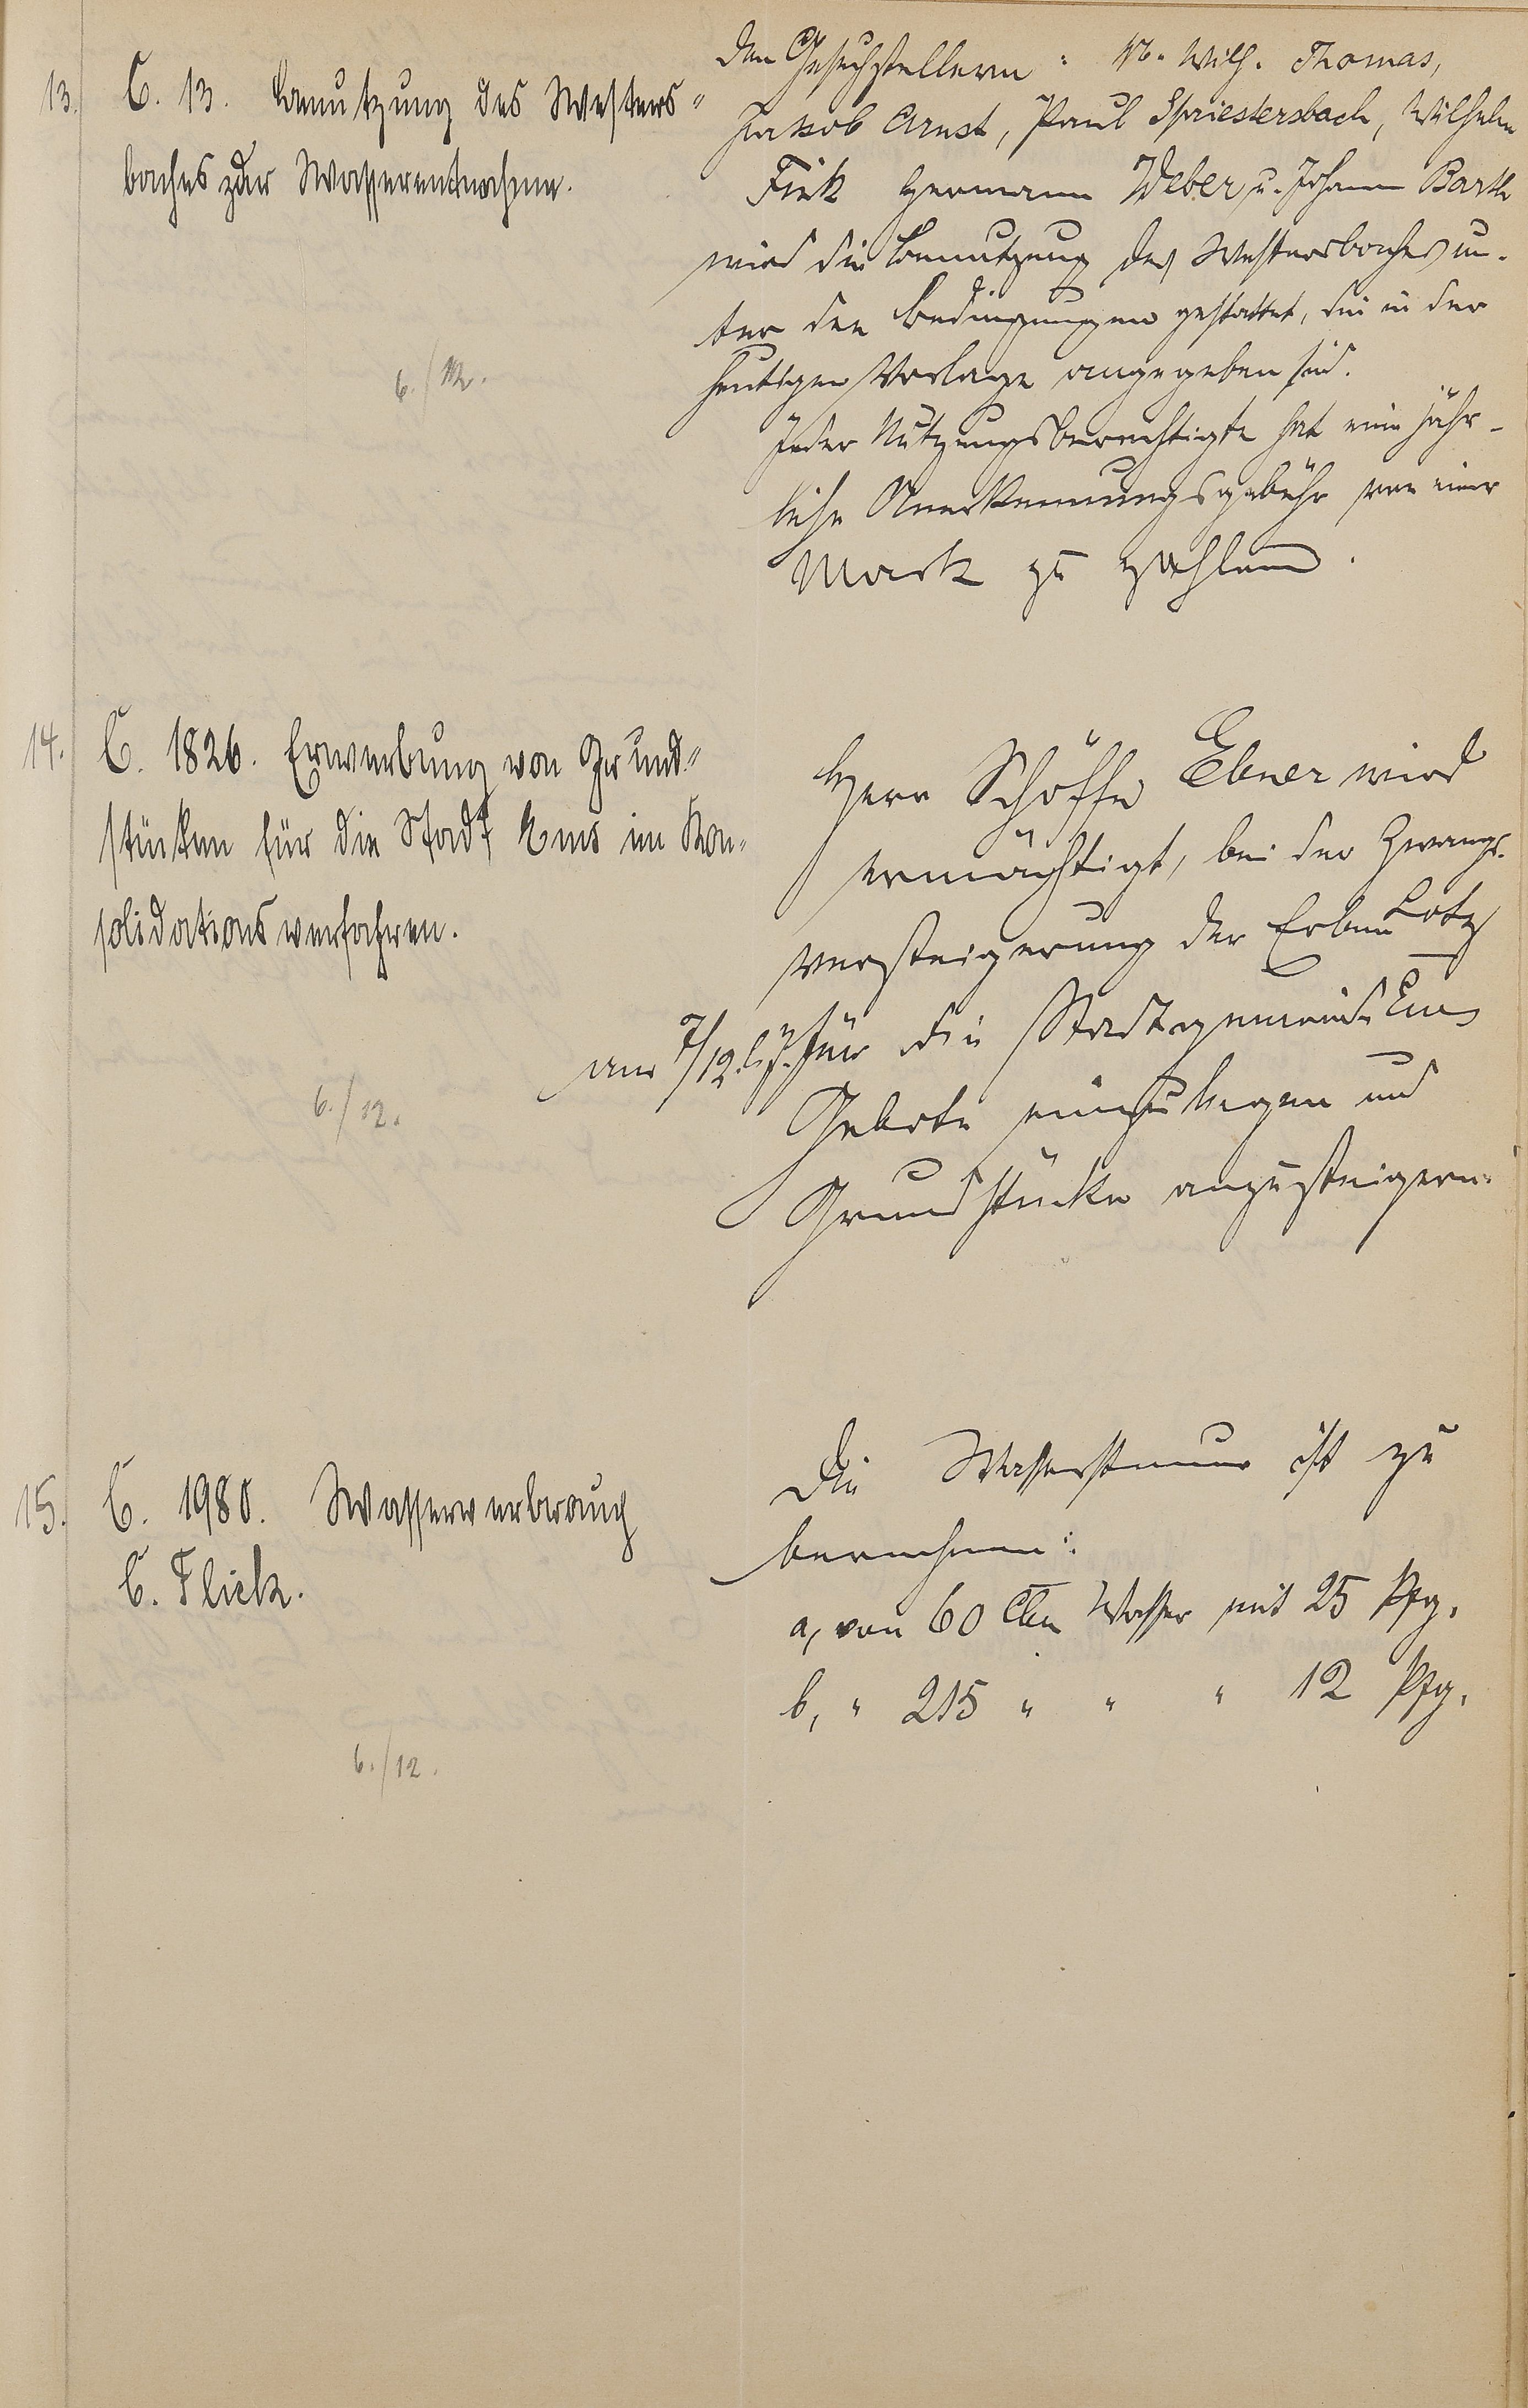 13. C. 13. Benutzung des Westers-
baches zur Wasserentnahme.
6./12.
Den Gesuchstellern: W. Wilh. Thomas,
Jakob Arnst, Paul Spriestersbach, Wilhelm
Fink Hermann Weber u. Johann Barth
wird die Benutzung des Westersbaches un-
ter den Bedingungen gestattet, die in der
heutigen Vorlage angegeben sind.
Jeder Nutzungsberechtigte hat eine jähr-
liche Anerkennungsgebühr von einer
Mark zu zahlen.
14. C. 1826. Erwerbung von Grund-
stücken für die Stadt Ems im Kon-
solidationsverfahren.
6./12.
Herr Schöffe Ebner wird
ermächtigt, bei der Zwangs-
versteigerung der Erben Lotz
am 7/12. l. J. für die Stadtgemeinde Ems
Gebote einzulegen und
Grundstücke anzusteigern.
15. C. 1980. Wasserverbrauch
C. Flick.
6./12.
Die Wassersteuer ist zu
berechnen:
a, von 60 Cbm Wasser mit 25 Pfg.
b, " 215 " " " 12 Pfg.